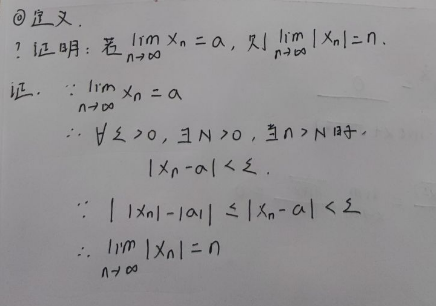 ◎定义.
? 证明: 若 lim n→∞ Xn = a, 则 lim n→∞ |Xn| = n.
证. ∵ lim n→∞ Xn = a
∴ ∀ Σ > 0, ∃ N > 0, 当 n > N 时,
|Xn - a| < Σ.
∵ | |Xn| - |a| | ≤ |Xn - a| < Σ
∴ lim n→∞ |Xn| = n